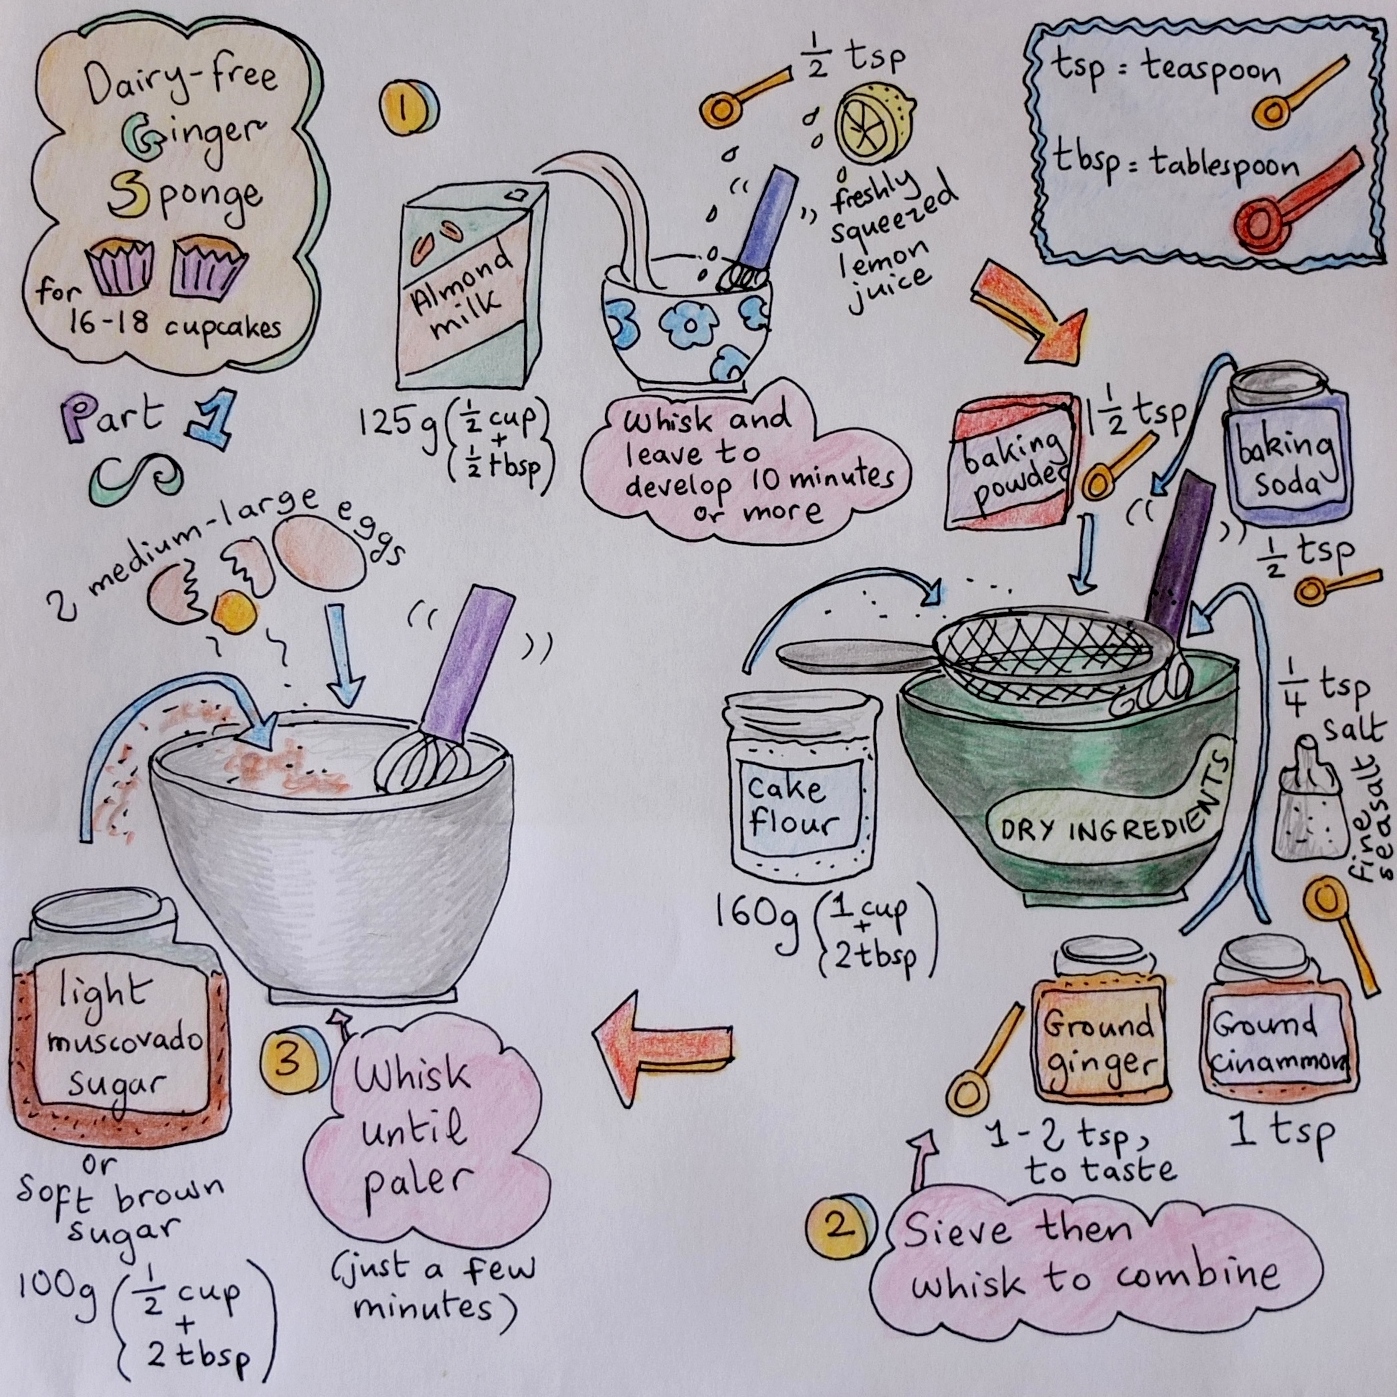 Dairy-free
Ginger
Sponge
for
16-18 cupcakes
Part 1
1
125g (1/2 cup
+
1/2 tbsp)
Almond
milk
1/2 tsp
freshly
squeezed
lemon
juice
Whisk and
leave to
develop 10 minutes
or more
tsp = teaspoon
tbsp = tablespoon
baking
powder
1 1/2 tsp
baking
soda
1/2 tsp
1/4 tsp
salt
fine
seasalt
cake
flour
160g (1 cup
+
2 tbsp)
DRY INGREDIENTS
Ground
ginger
1-2 tsp,
to taste
Ground
cinammon
1 tsp
2
Sieve then
whisk to combine
2 medium-large eggs
light
muscovado
sugar
or
soft brown
sugar
100g (1/2 cup
+
2 tbsp)
3
Whisk
until
paler
(just a few
minutes)